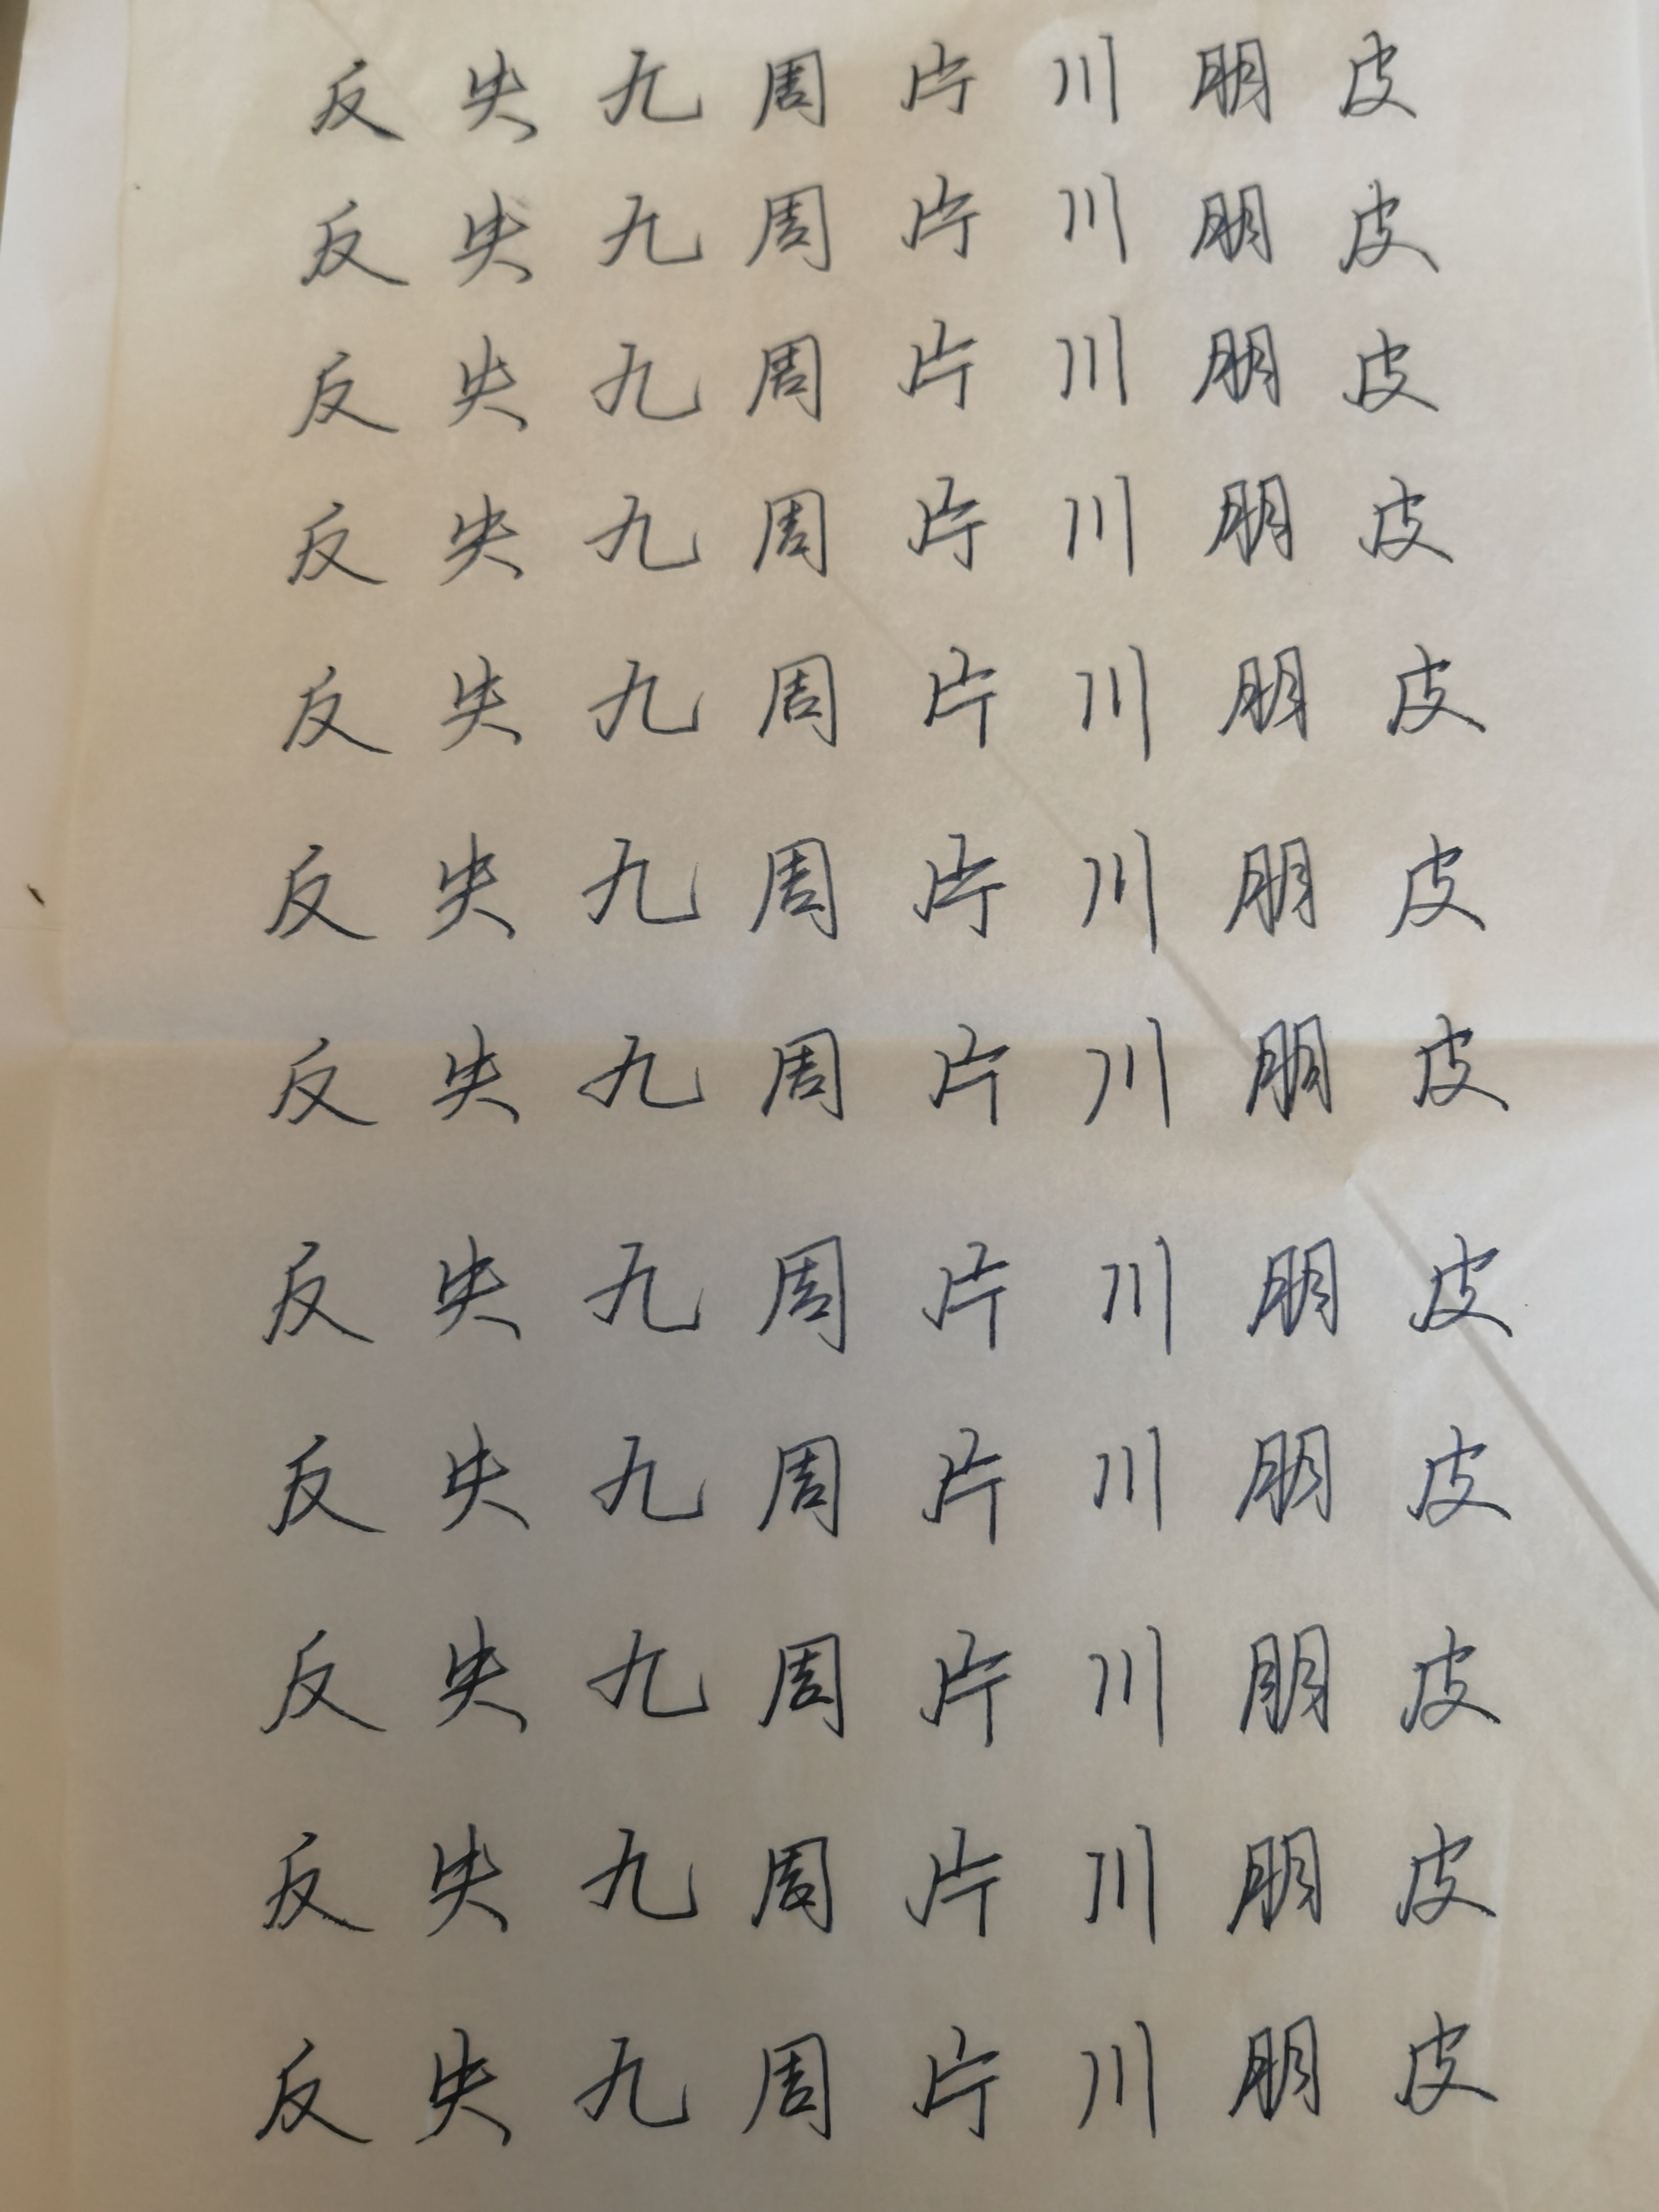 反 失 九 周 片 川 朋 皮
反 失 九 周 片 川 朋 皮
反 失 九 周 片 川 朋 皮
反 失 九 周 片 川 朋 皮
反 失 九 周 片 川 朋 皮
反 失 九 周 片 川 朋 皮
反 失 九 周 片 川 朋 皮
反 失 九 周 片 川 朋 皮
反 失 九 周 片 川 朋 皮
反 失 九 周 片 川 朋 皮
反 失 九 周 片 川 朋 皮
反 失 九 周 片 川 朋 皮